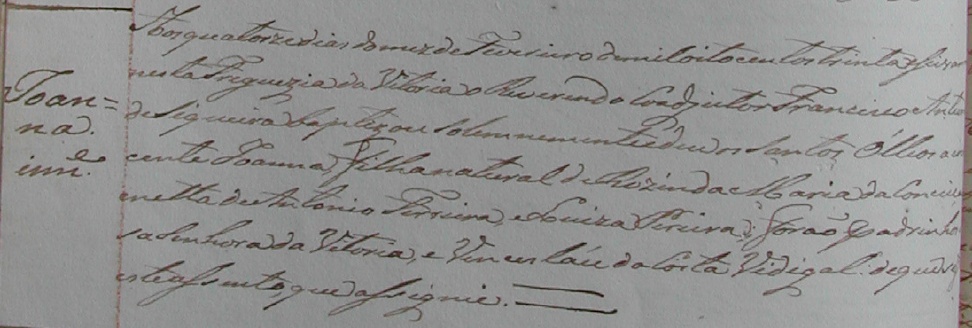 Aos quatorze dias do mez de Fevereiro de mil oito centos trinta e
Joan=
na.
inn.e
nesta Freguezia da Vitoria o Reverendo Coadjutor Francisco Anto
de Siqueira baptizou solemnemente e deu os Santos Olleos a
cente Joanna, filha natural de Rozinda Maria da Concei
netta de Antonio Ferreira, e Louiza Pereira; forão Padrinho
sa Senhora da Vitoria, e Vincesláu da Costa Vidigal: de que
este assento, que assignei.